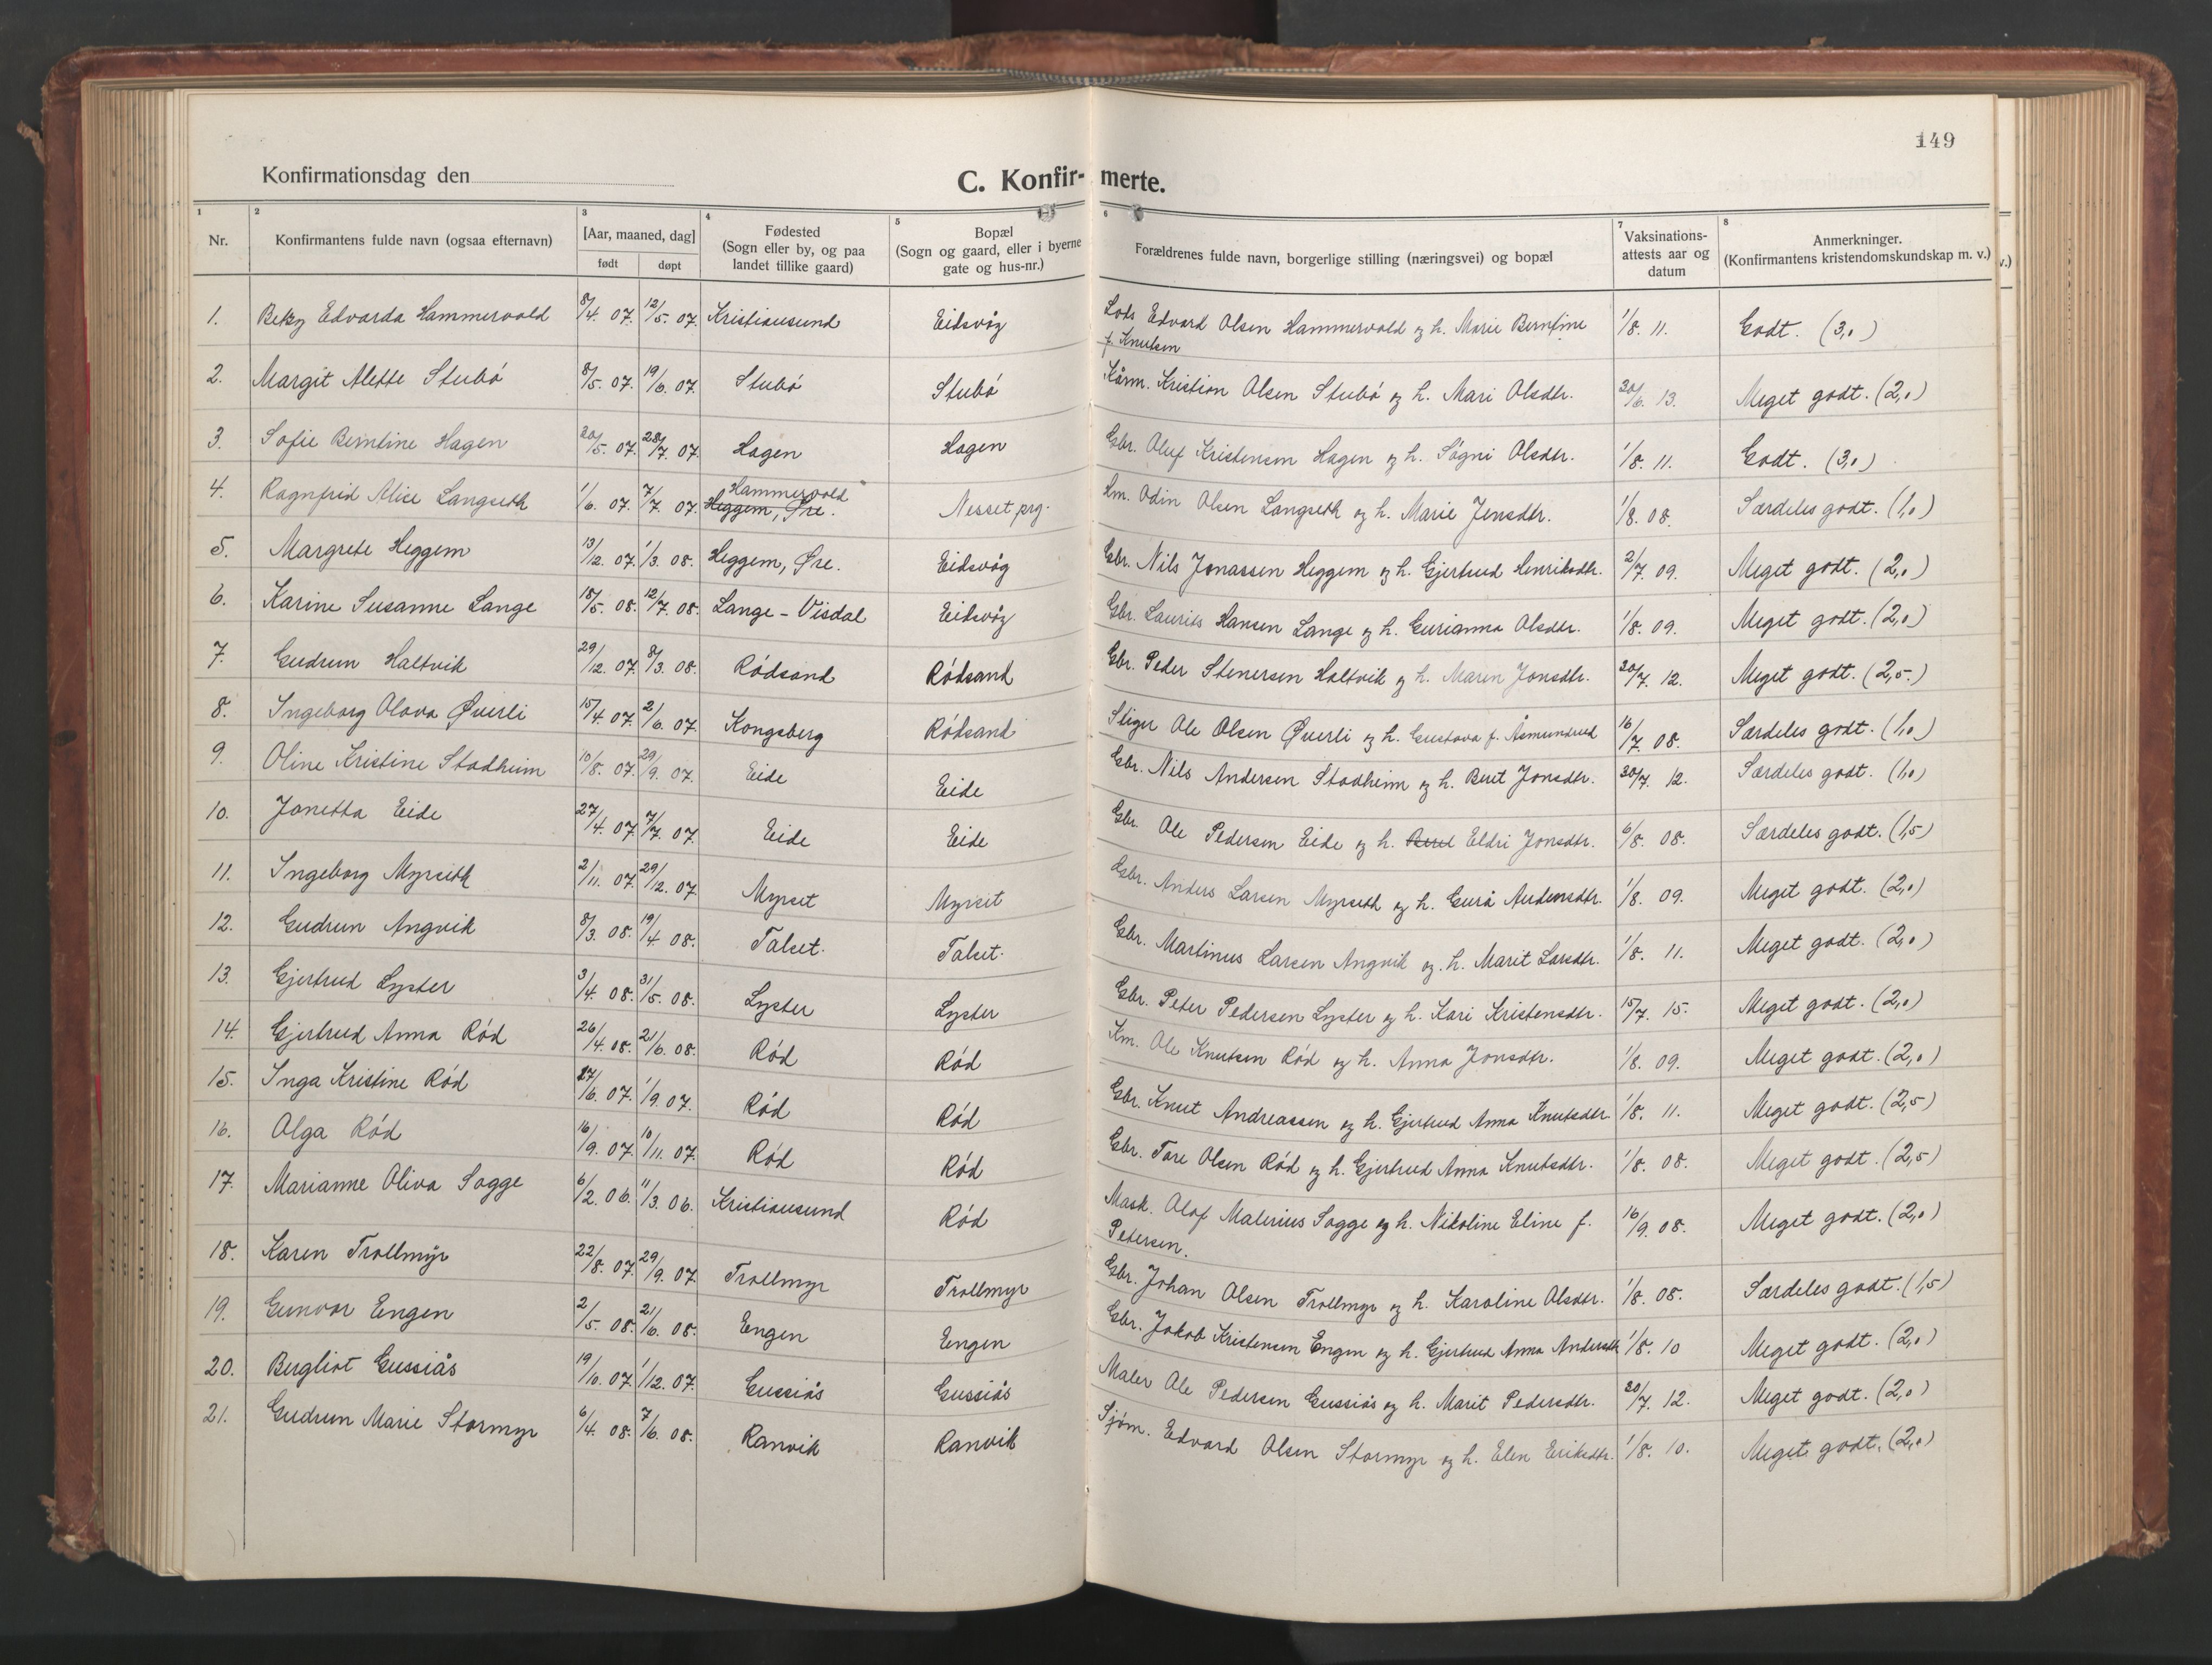 149
Konfirmationsdag den
C. Konfir- merte.
1 2 3 4 5 6 7 8
Nr. Konfirmantens fulde navn (ogsaa efternavn) [Aar, maaned, dag] født døpt Fødested (Sogn eller by, og paa landet tillike gaard) Bopæl (Sogn og gaard, eller i byerne gate og hus-nr.) Forældrenes fulde navn, borgerlige stilling (næringsvei) og bopæl Vaksinations-attests aar og datum Anmerkninger. (Konfirmantens kristendomskundskap m. v.)
1. Betzy Edvarda Hammervold 8/4. 07. 12/5. 07. Kristiansund Eidsvåg Lods Edvard Olsen Hammervold og h. Marie Berntine f. Knutsen 1/8. 11. Godt. (3,0)
2. Margit Alette Stubö 8/5. 07. 19/6. 07. Stubö Stubö Kårm. Kristian Olsen Stubö og h. Mari Olsdtr. 30/6. 13. Meget godt. (2,0)
3. Sofie Berntine Hagen 20/5. 07. 28/7. 07. Hagen Hagen Gbr. Oluf Kristensen Hagen og h. Sögni Olsdtr. 1/8. 11. Godt. (3,0)
4. Ragnfrid Alice Langseth 1/6. 07. 7/7. 07. Hammervold Heggem, Øre. Nesset prg. Hm. Odin Olsen Langseth og h. Marie Jensdtr. 1/8. 08. Særdeles godt. (1,0)
5. Margrete Heggem 13/12. 07. 1/3. 08. Heggem, Øre. Eidsvåg Gbr. Nils Jonassen Heggem og h. Gjertrud Henriksdtr. 2/7. 09. Meget godt. (2,0)
6. Karine Susanne Lange 18/5. 08. 12/7. 08. Lange - Visdal Eidsvåg Gbr. Laurits Hansen Lange og h. Gurianna Olsdtr. 1/8. 09. Meget godt. (2,0)
7. Gudrun Haltvik 29/12. 07. 8/3. 08. Rödsand Rödsand Gbr. Peder Stenersen Haltvik og h. Maren Jonsdtr. 20/7. 12. Meget godt. (2,5.)
8. Ingeborg Olava Øverli 15/4. 07. 2/6. 07. Kongsberg Rödsand Stiger Ole Olsen Øverli og h. Gustava f. Åsmundrud 16/7. 08. Særdeles godt. (1,0)
9. Oline Kristine Stadheim 10/8. 07. 29/9. 07. Eide Eide Gbr. Nils Andersen Stadheim og h. Beret Jonsdtr. 30/7. 12. Særdeles godt. (1,0)
10. Janetta Eide 27/4. 07. 7/7. 07. Eide Eide Gbr. Ole Pedersen Eide og h. Beret Eldri Jonsdtr. 6/8. 08. Særdeles godt. (1,5)
11. Ingeborg Myrseth 2/11. 07. 29/12. 07. Myrset Myrset Gbr. Anders Larsen Myrseth og h. Gurå Audensdtr. 1/8. 09. Meget godt. (2,0)
12. Gudrun Angvik 8/3. 08. 19/4. 08. Talset. Talset. Gbr. Martinus Larsen Angvik og h. Marit Larsdtr. 1/8. 11. Meget godt. (2,0)
13. Gjertrud Lyster 3/4. 08. 31/5. 08. Lyster Lyster Gbr. Peter Pedersen Lyster og h. Kari Kristensdtr. 15/7. 15. Meget godt. (2,0)
14. Gjertrud Anna Röd 26/4. 08. 21/6. 08. Röd Röd Km. Ole Knutsen Röd og h. Anna Jonsdtr. 1/8. 09. Meget godt. (2,0)
15. Inga Kristine Röd 27/6. 07. 1/9. 07. Röd Röd Gbr. Knut Andreassen og h. Gjertrud Anna Knutsdtr. 1/8. 11. Meget godt. (2,5)
16. Olga Röd 16/9. 07. 10/11. 07. Röd Röd Gbr. Tore Olsen Röd og h. Gjertrud Anna Knutsdtr. 1/8. 08. Meget godt. (2,5)
17. Marianne Oliva Sogge 6/2. 06. 11/3. 06. Kristiansund Röd Mask. Olaf Malerius Sogge og h. Nikoline Eline f. Petersen. 16/9. 08. Meget godt. (2,0)
18. Karen Trollmyr 22/8. 07. 29/9. 07. Trollmyr Trollmyr Gbr. Johan Olsen Trollmyr og h. Karoline Olsdtr. 1/8. 08. Særdeles godt. (1,5)
19. Gunvor Engen 2/5. 08. 21/6. 08. Engen Engen Gbr. Jakob Kristensen Engen og h. Gjertrud Anna Andersdtr. 1/8. 10 Meget godt. (2,0)
20. Bergliot Gussiås 19/10. 07. 1/12. 07. Gussiås Gussiås Maler Ole Pedersen Gussiås og h. Marit Pedersdtr. 20/7. 12. Meget godt. (2,0)
21. Gudrun Marie Stormyr 6/4. 08. 7/6. 08. Ranvik Ranvik Sjöm. Edvard Olsen Stormyr og h. Elen Eriksdtr. 1/8. 10. Meget godt. (2,0)